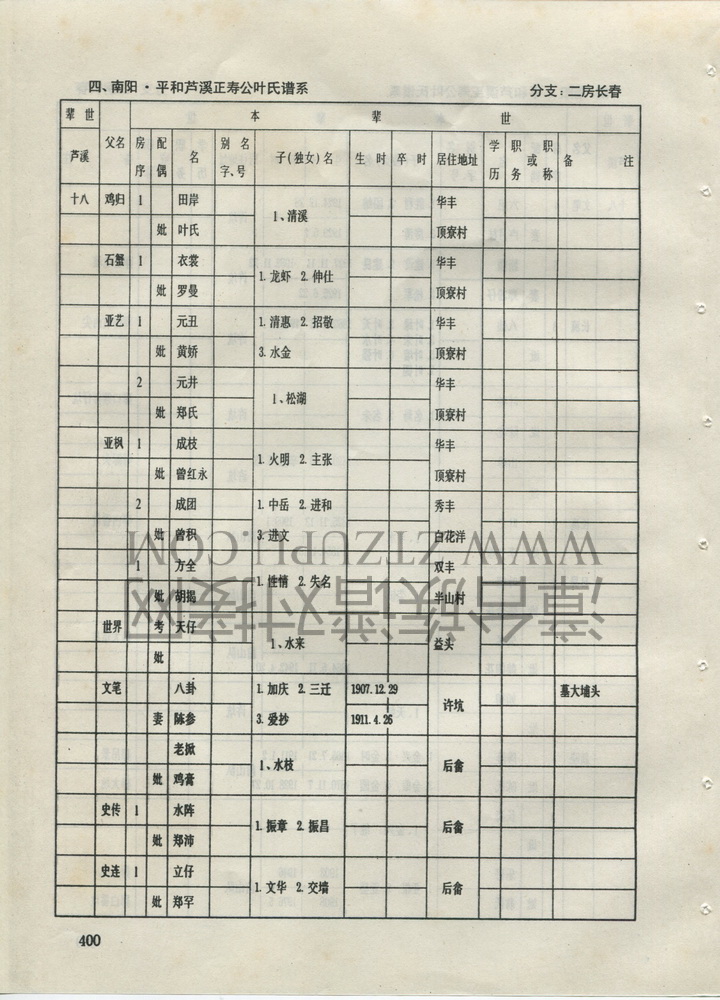 四、南阳·平和芦溪正寿公叶氏谱系 分支：二房长春
辈世 本 辈 世
芦溪 父名 房序 配偶 名 别名字、号 子（独女）名 生时 卒时 居住地址 学历 职务或职称 备注
十八 鸡归 1 田岸 1、清溪 华丰
妣 叶氏 顶寮村
石蟹 1 衣裳 1. 龙虾 2. 伸仕 华丰
妣 罗曼 顶寮村
亚艺 1 元丑 1. 清惠 2. 招敬 华丰
妣 黄娇 3. 水金 顶寮村
2 元井 1、松湖 华丰
妣 郑氏 顶寮村
亚枫 1 成枝 1. 火明 2. 主张 华丰
妣 曾红永 顶寮村
2 成团 1. 中岳 2. 进和 秀丰
妣 曾积 3. 进文 白花洋
1 方全 1. 性情 2. 失名 双丰
妣 胡揭 半山村
世界 考 天仔 1、水来 益头
妣
文笔 八卦 1. 加庆 2. 三迁 1907.12.29 许坑 墓大埔头
妻 陈参 3. 爱抄 1911.4.26
老掀 1、水枝 后畲
妣 鸡膏
史传 1 水阵 1. 振章 2. 振昌 后畲
妣 郑沛
史连 1 立仔 1. 文华 2. 交墙 后畲
妣 郑罕
400
WWW.ZTZUPU.COM
漳台族谱对接网